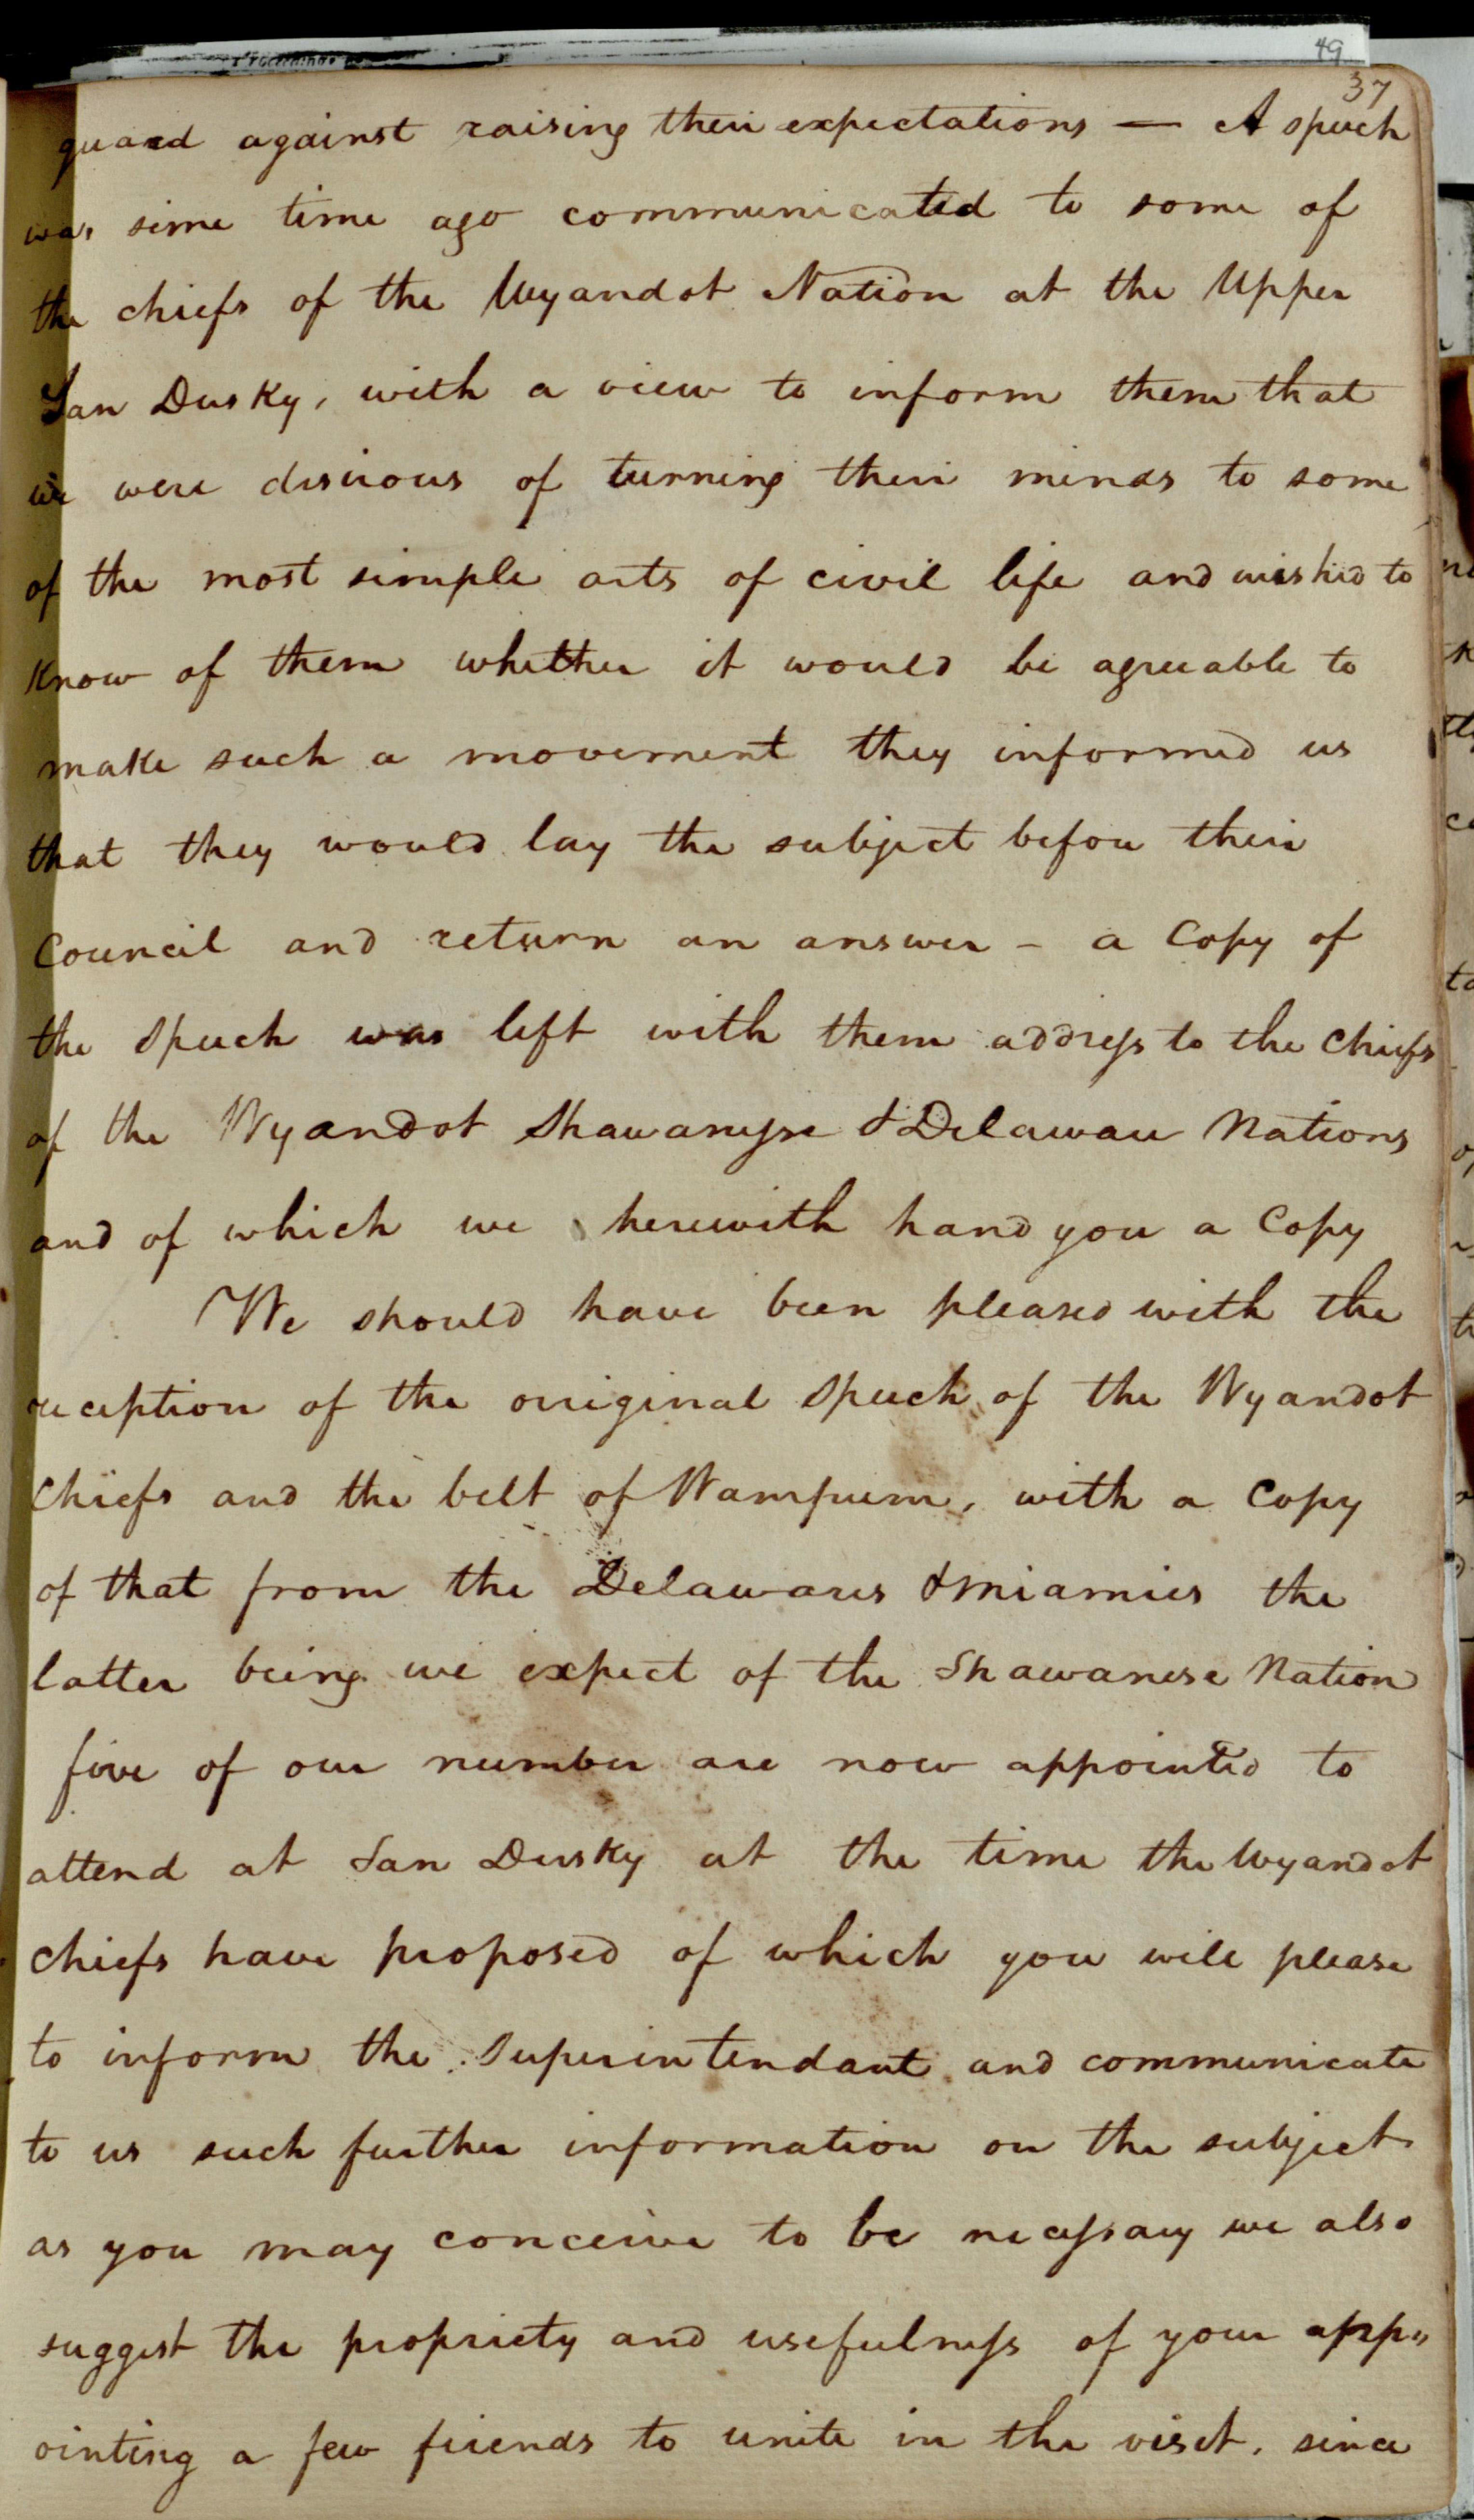 49
37
guard against raising their expectations — A speech
was some time ago communicated to some of
the chiefs of the Wyandot Nation at the Upper
San Dusky, with a view to inform them that
we were desirous of turning their minds to some
of the most simple arts of civil life and wished to
know of them whether it would be agreeable to
make such a movement they informed us
that they would lay the subject before their
Council and return an answer – a Copy of
the Speech was left with them address to the Chiefs
of the Wyandot Shawanese & Delaware Nations
and of which we herewith hand you a Copy
We should have been pleased with the
reception of the original Speech of the Wyandot
Chiefs and the belt of Wampum, with a Copy
of that from the Delawares & Miamies the
latter being we expect of the Shawanese Nation
five of our number are now appointed to
attend at San Dusky at the time the Wyandot
Chiefs have proposed of which you will please
to inform the Superintendant and communicate
to us such further information on the subject
as you may conceive to be necessary we also
suggest the propriety and usefulness of your app„
ointing a few friends to unite in the visit, since